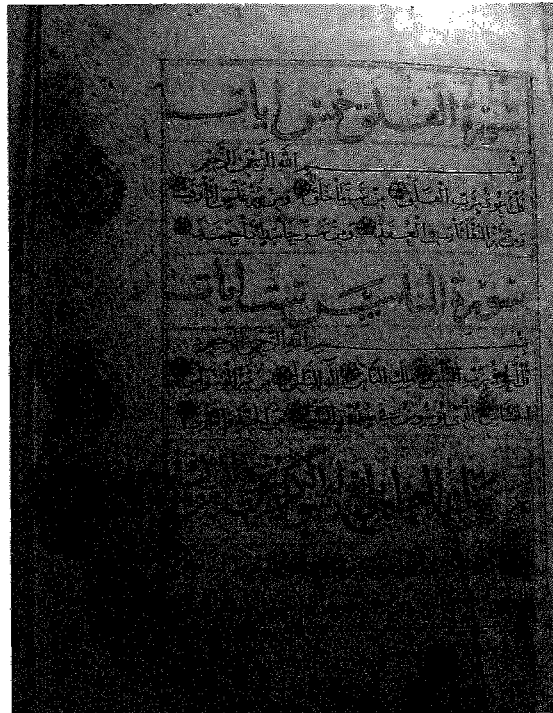 سورة الفلق خمس ايات
بسم الله الرحمن الرحيم
قل اعوذ برب الفلق من شر ما خلق ومن شر غاسق اذا وقب
ومن شر النفاثات في العقد ومن شر حاسد اذا حسد
سورة الناس ست ايات
بسم الله الرحمن الرحيم
قل اعوذ برب الناس ملك الناس اله الناس من شر الوسواس
الخناس الذي يوسوس في صدور الناس من الجنة والناس